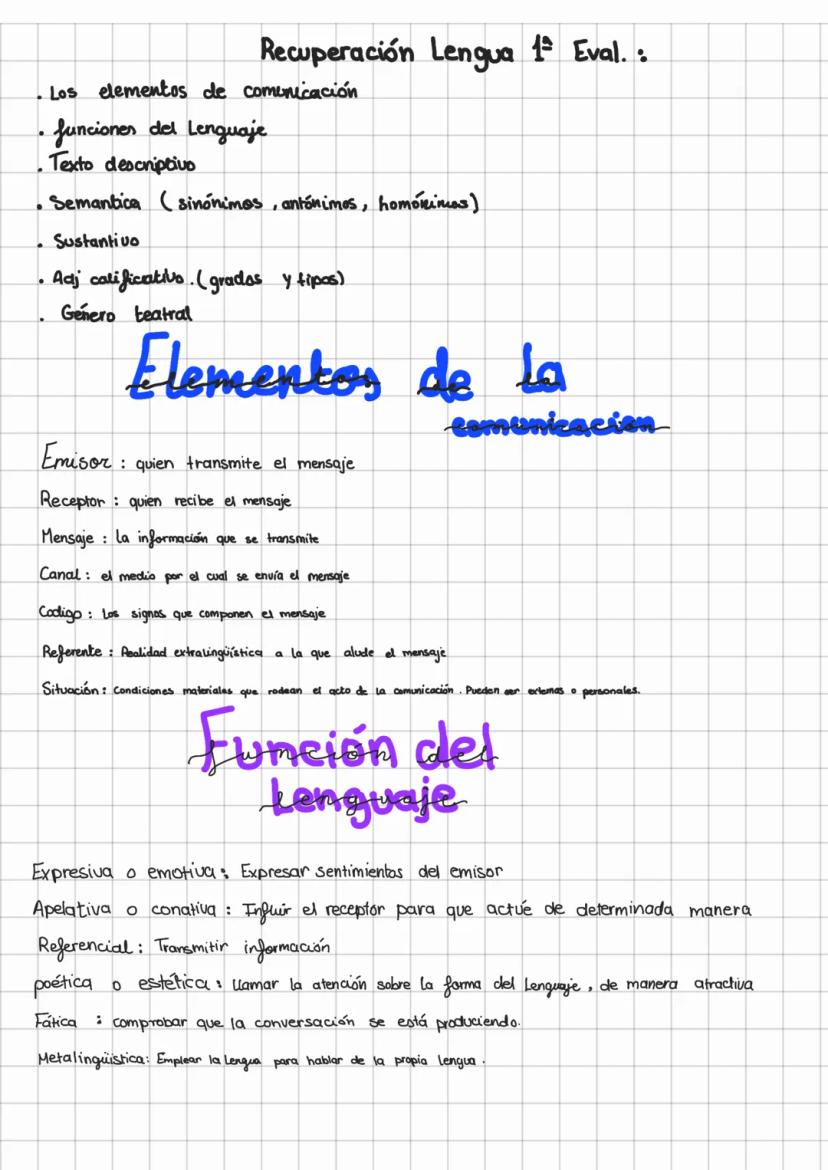 Recuperación Lengua 1ª Eval. :
. Los elementos de comunicación
. funciones del Lenguaje
. Texto descriptivo
. Semantica ( sinónimos , antónimos, homónimos)
. Sustantivo
. Adj calificativo. ( grados y tipos)
. Género teatral
Elementos de la
comunicacion
Emisor : quien transmite el mensaje
Receptor : quien recibe el mensaje
Mensaje : la información que se transmite
Canal : el medio por el cual se envía el mensaje
Codigo : los signos que componen el mensaje
Referente : Realidad extralingüística a la que alude el mensaje
Situación : Condiciones materiales que rodean el acto de la comunicación . Pueden ser externas o personales.
Función del
lenguaje
Expresiva o emotiva : Expresar sentimientos del emisor
Apelativa o conativa : Influir el receptor para que actué de determinada manera
Referencial : Transmitir información
poética o estética : llamar la atención sobre la forma del Lenguaje , de manera atractiva
Fática : comprobar que la conversación se está produciendo.
Metalingüistica : Emplear la Lengua para hablar de la propia lengua .